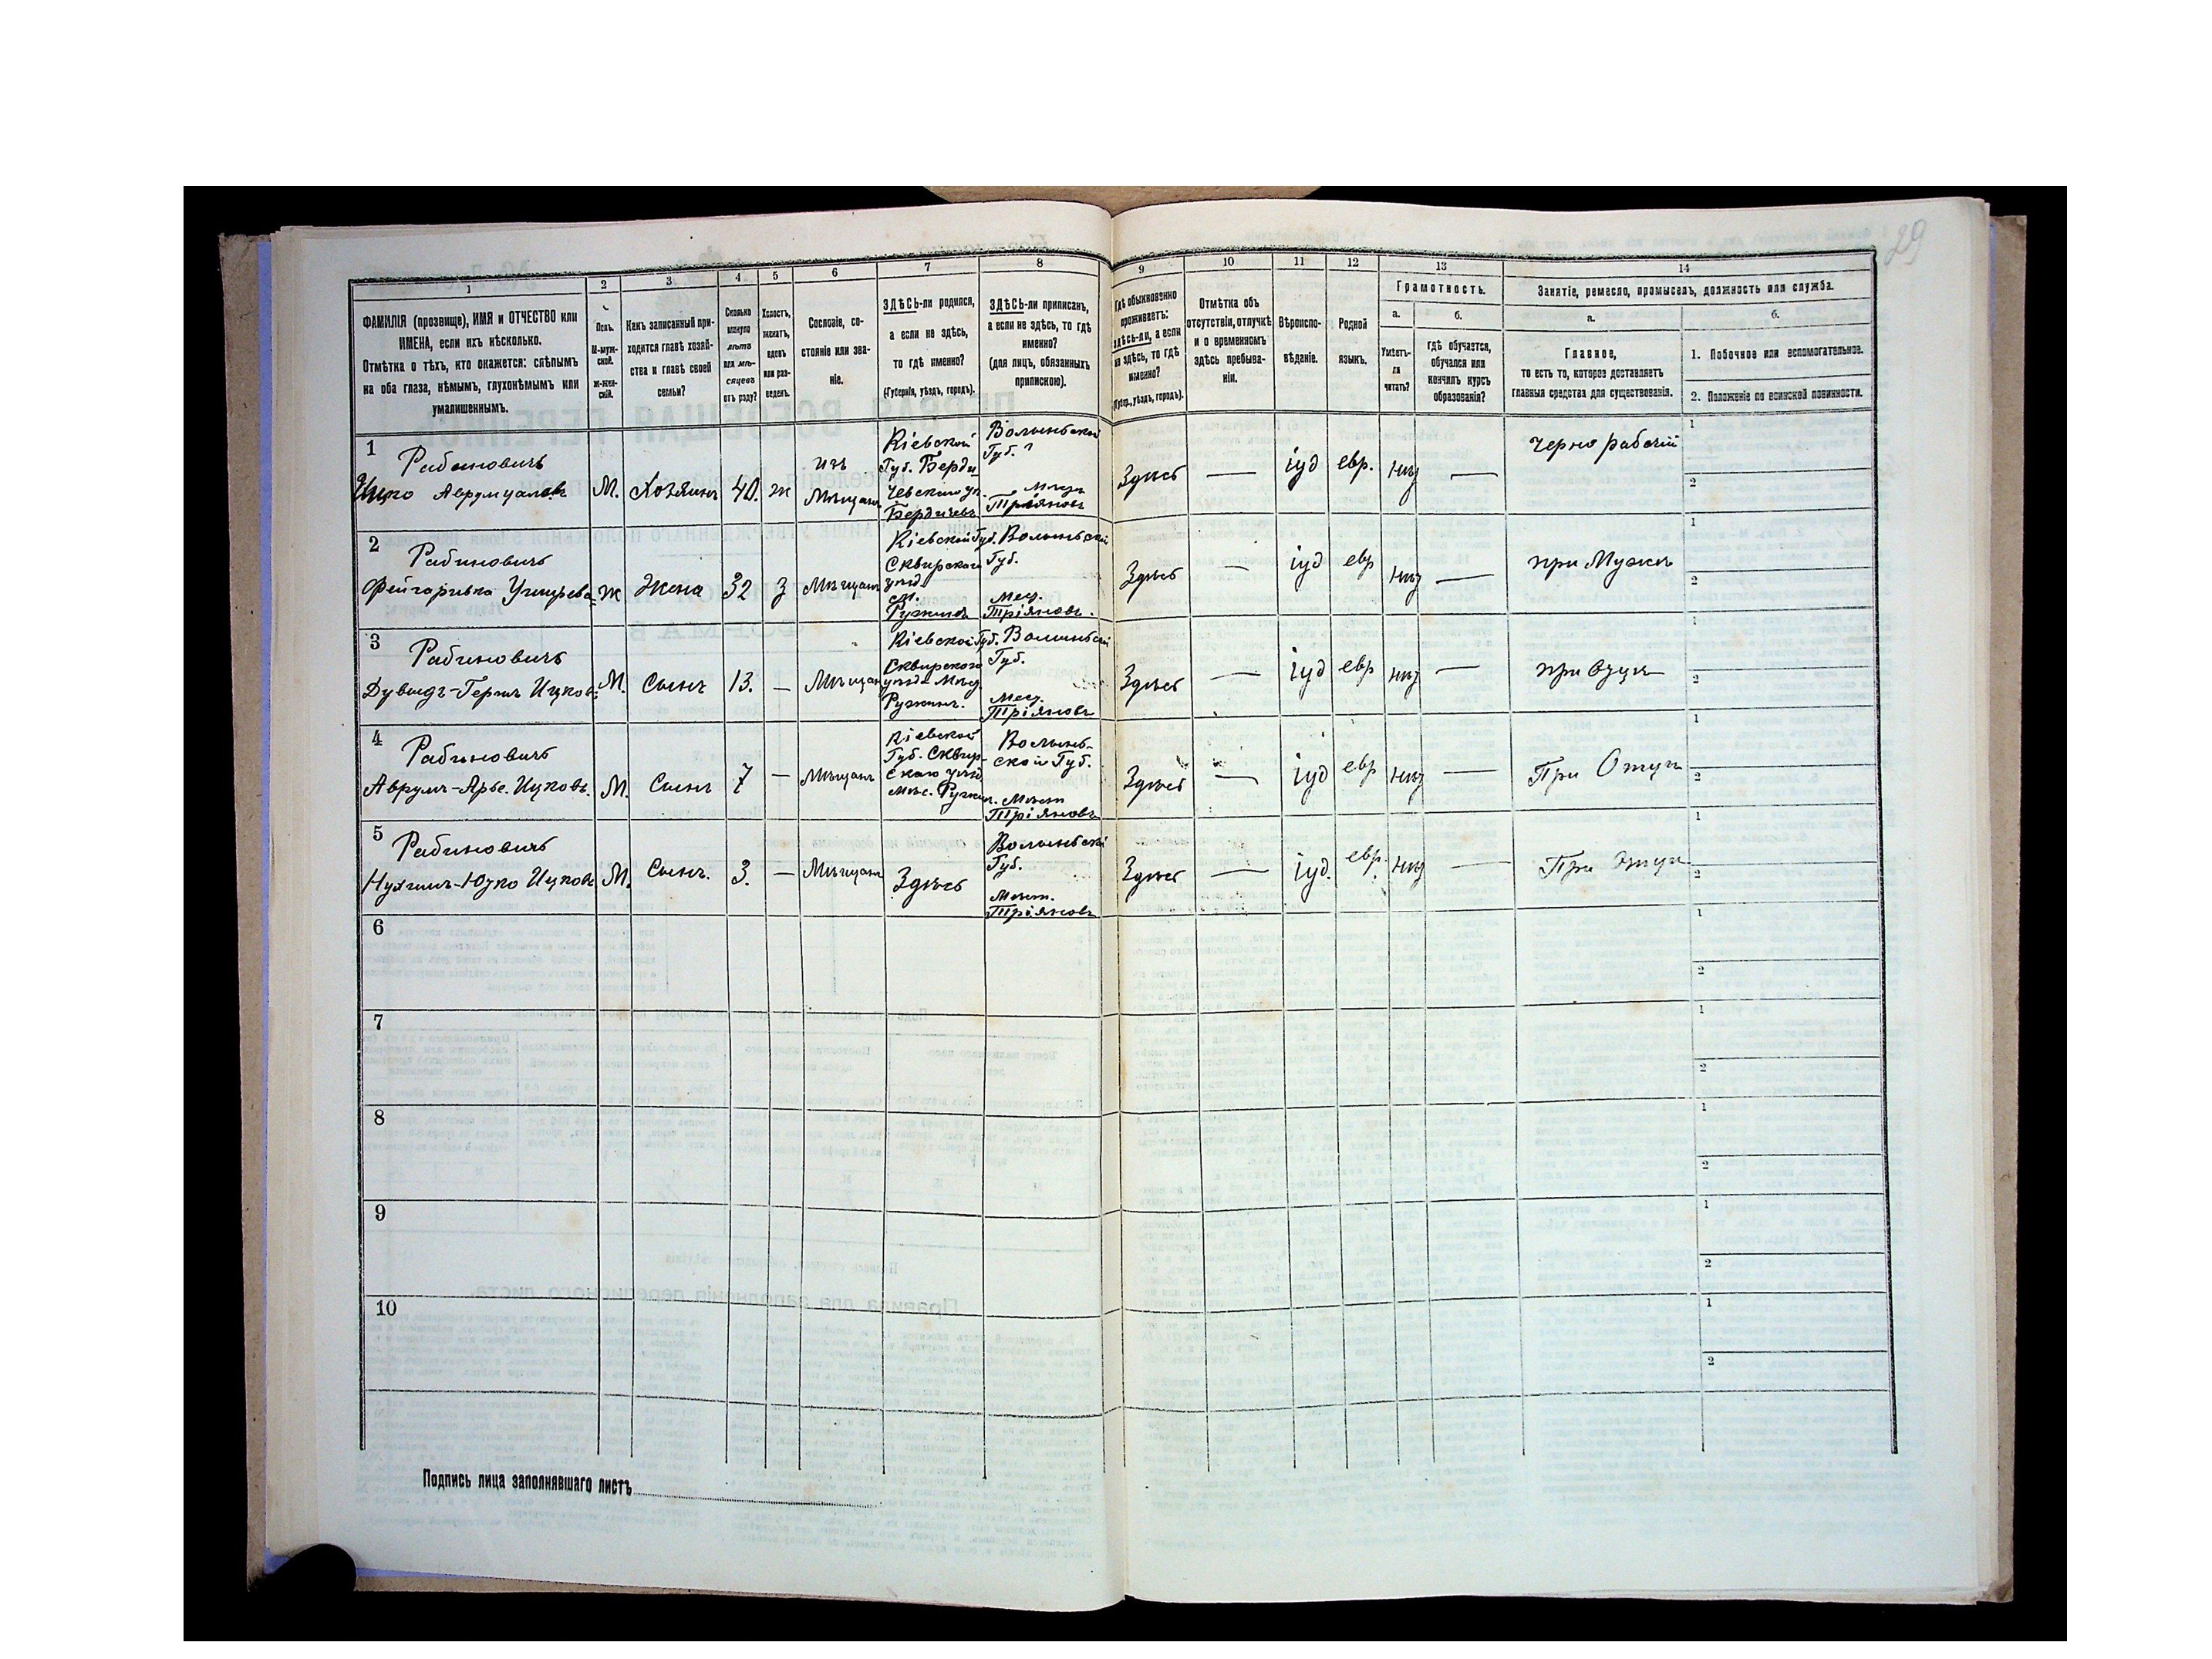 29
1
2
3
4
5
6
7
8
9
10
11
12
13
14
ФАМИЛІЯ (прозвище), ИМЯ и ОТЧЕСТВО или
ИМЕНА, если ихъ нѣсколько.
Отмѣтка о тѣхъ, кто окажется: слѣпымъ
на оба глаза, нѣмымъ, глухонѣмымъ или
умалишеннымъ.
Полъ.
М-муж-
ской.
Ж-жен-
скій.
Какъ записанный при-
ходится главѣ хозяй-
ства и главѣ своей
семьи?
Сколько
минуло
лѣтъ
или мѣ-
сяцевъ
отъ роду?
Холостъ,
женатъ,
вдовъ
или раз-
веденъ.
Сословіе, со-
стояніе или зва-
ніе.
ЗДѢСЬ-ли родился,
а если не здѣсь,
то гдѣ именно?
(Губернія, уѣздъ, городъ).
ЗДѢСЬ-ли приписанъ,
а если не здѣсь, то гдѣ
именно?
(для лицъ, обязанныхъ
припискою).
Гдѣ обыкновенно
проживаетъ:
здѣсь-ли, а если
не здѣсь, то гдѣ
именно?
(Губер., уѣздъ, городъ).
Отмѣтка объ
отсутствіи, отлучкѣ
и о временномъ
здѣсь пребыва-
ніи.
Вѣроиспо-
вѣданіе.
Родной
языкъ.
Грамотность.
а.
Умѣетъ-
ли
читать?
б.
Гдѣ обучается,
обучался или
кончилъ курсъ
образованія?
Занятіе, ремесло, промыселъ, должность или служба.
а.
Главное,
то есть то, которое доставляетъ
главныя средства для существованія.
б.
1. Побочное или вспомогательное.
2. Положеніе по воинской повинности.
1
Рабиновичъ
Ицко
М.
Хозяинъ
40.
ж
изъ
Мѣщанъ
Кіевской
Губ. Берди
чевскаго уѣ.
Бердичевъ
Волыньской
Губ.
Здѣсь
—
іуд
евр.
—
черно рабочій
1
2
2
Рабиновичъ
ж
Жена
32
з
Мѣщанъ
Кіевской Губ.
Сквирскаго
уѣзд
м.
Ружинъ
Волыньской
Губ.
Здѣсь
—
іуд
евр
—
при Мужѣ
1
2
3
Рабиновичъ
Дувыдъ-Гершъ Ицковъ
М.
Сынъ
13.
—
Мѣщан
Кіевской Губ.
Сквирского
Ружинъ.
Волыньской
Губ.
Здѣсь
—
іуд
евр
—
при Отцѣ
1
2
4
Рабиновичъ
Аврумъ-Арье. Ицковъ.
М.
Сынъ
7
—
Мѣщанъ
Кіевской
Губ. Сквир-
скаго уѣзд
мѣс. Ружин.
Волынь-
ской Губ.
Здѣсь
—
іуд
евр
—
При Отцѣ
1
2
5
Рабиновичъ
Нухимъ-Юзко Ицковъ
М.
Сынъ.
3.
—
Мѣщанъ
Здѣсь
Волыньской
Губ.
Здѣсь
—
іуд.
евр.
—
При Отцѣ
1
2
6
1
2
7
1
2
8
1
2
9
1
2
10
1
2
Подпись лица заполнявшаго листъ